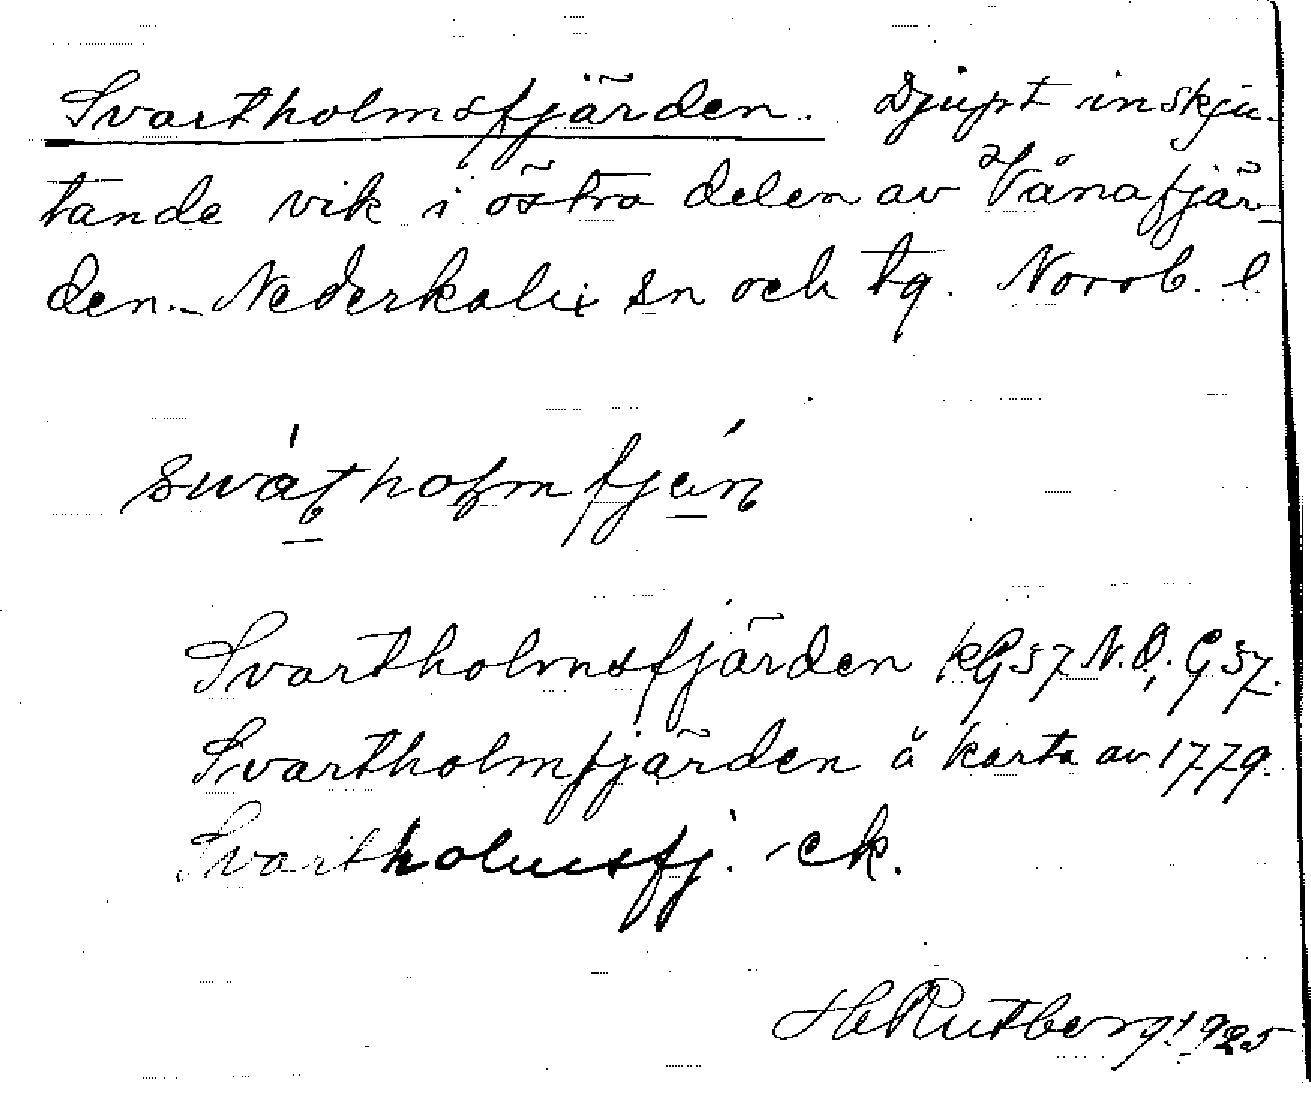 Svartholmsfjärden. Djupt inskju-
tande vik i östra delen av Vånafjär-
den. Nederkalix sn och tg. Norrb. l
Svartholmsfjärden KG 57 N.O, G. 57.
Svartholmfjärden å karta av 1779.
Svartholmsfj. - ek.
H Rutberg 1925